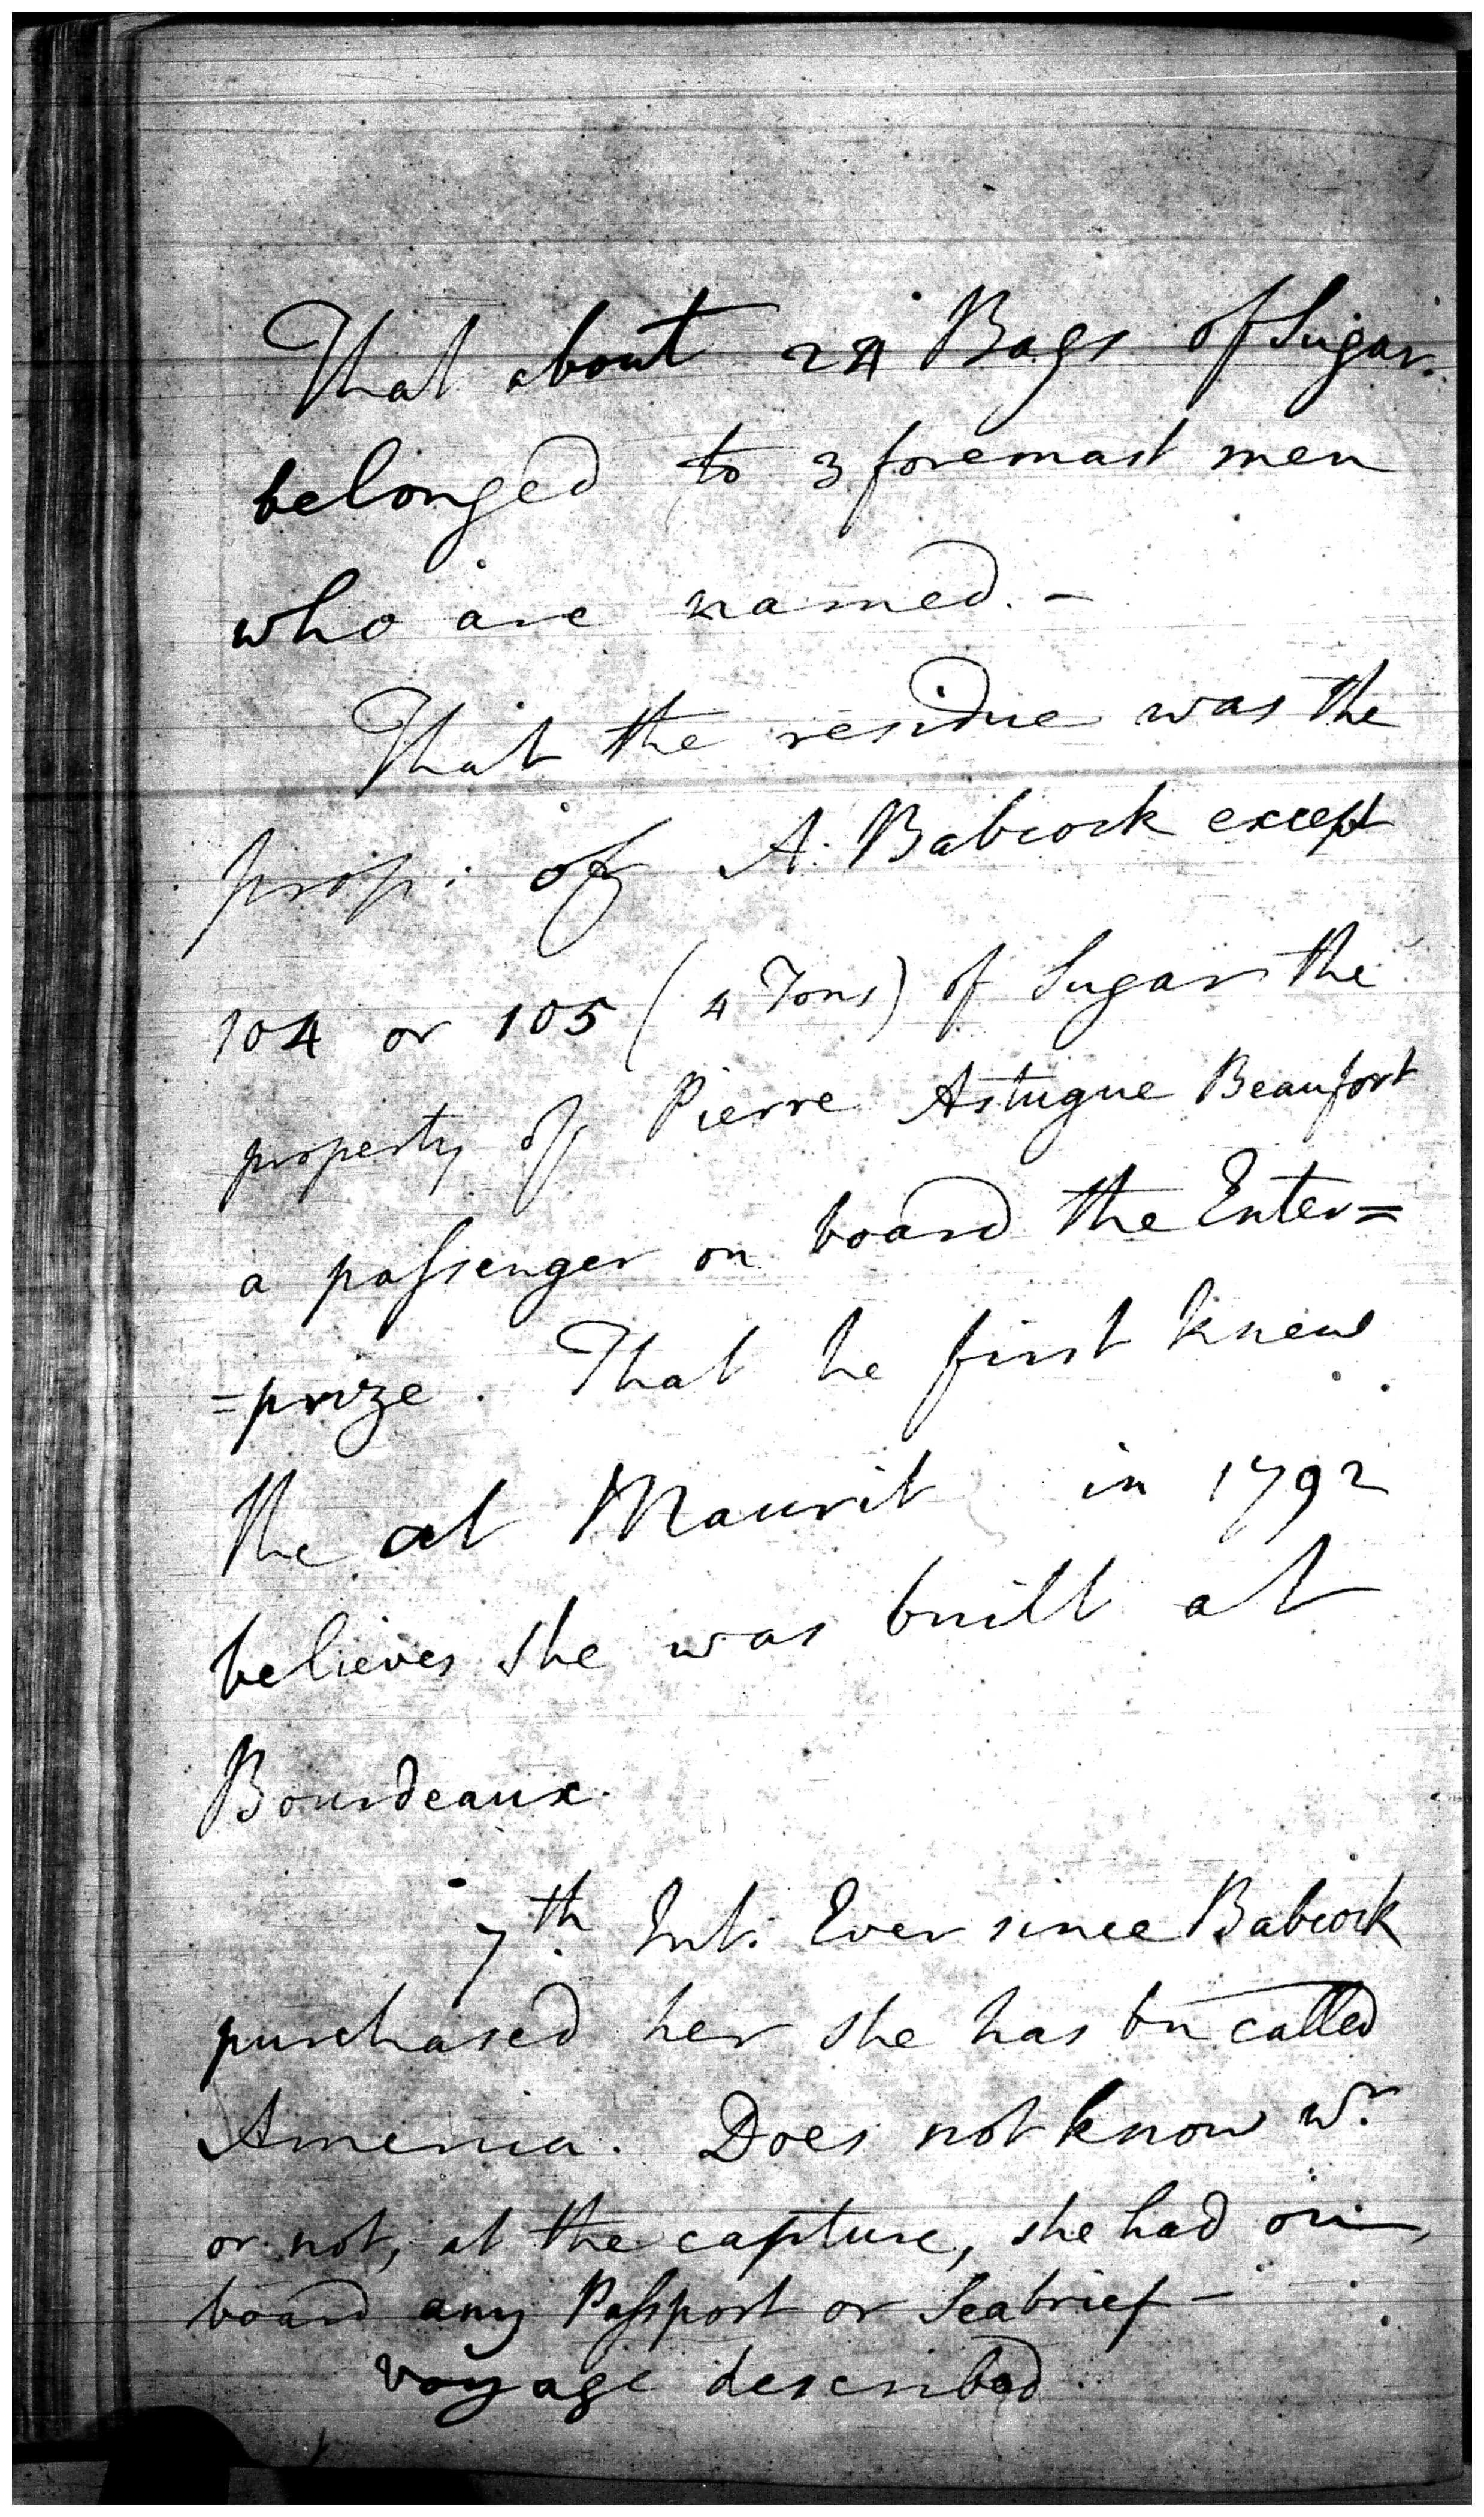 That about 24 Bags of Sugar.
belonged to 3 foremast men
who are named. -
That the residue was the
prop: of A. Babcock except
104 or 105 (4 Tons) of Sugar the
property of Pierre Astugue Beaufort
a passenger on board the Enter=
=prize. That he first knew
the at Maurit in 1792
believes she was built at
Bourdeaux.
7th Int: Ever since Babcock
purchased her she has bn called
Amenia. Does not know wr.
or not, at the capture, she had on
board any Passport or Seabrief -
voyage described.